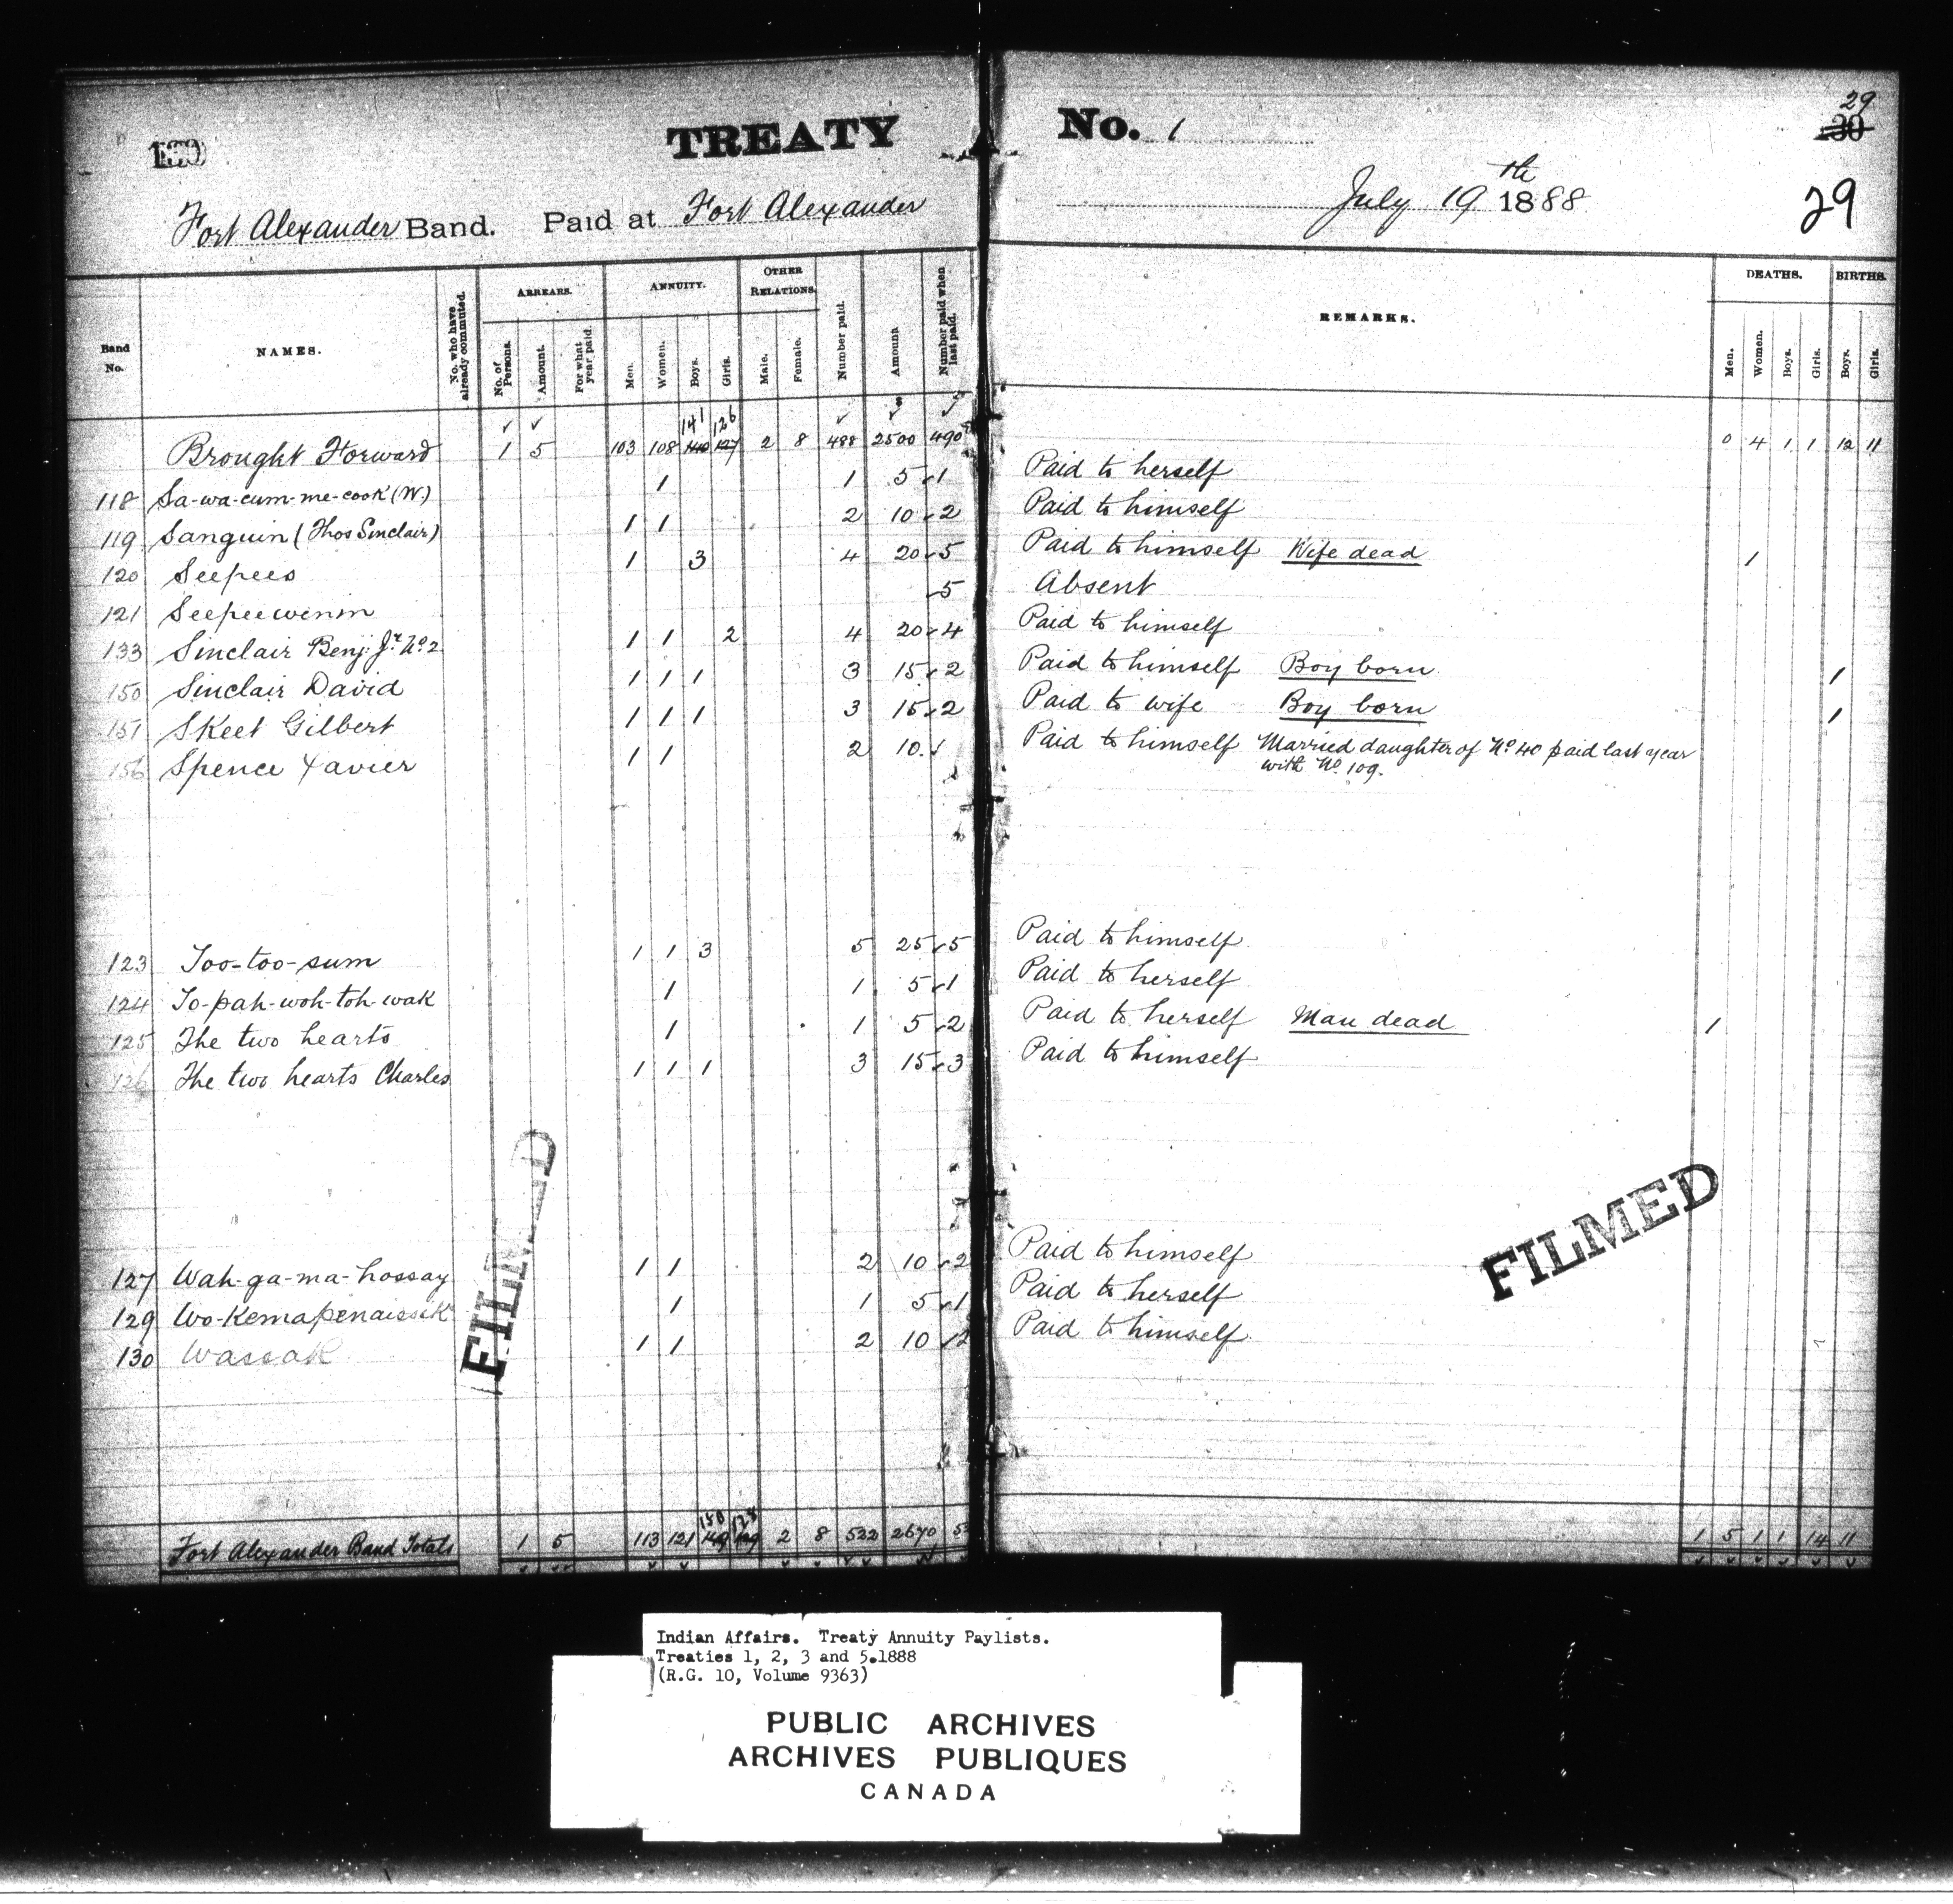 TREATY No. 1
29
30
Fort Alexander Band. Paid at Fort Alexander July 19th 1888 29
Band No. NAMES. No. who have already commuted. ARREARS. No. of Persons. Amount. For what year paid. ANNUITY. Men. Women. Boys. Girls. OTHER RELATIONS. Male. Female. Number paid. Amount Number paid when last paid. REMARKS. DEATHS. Men. Women. Boys. Girls. BIRTHS. Boys. Girls.
141 126
Brought Forward 1 5 103 108 140 127 2 8 488 2500 490 0 4 1 1 12 11
118 Sa-wa-cum-me-cook (W.) 1 1 5 1 Paid to herself
119 Sanguin (Thos Sinclair) 1 1 2 10 2 Paid to himself
120 Seepees 1 3 4 20 5 Paid to himself Wife dead 1
121 Seepeewenin 5 Absent
133 Sinclair Benj. Jr. No 2 1 1 2 4 20 4 Paid to himself
150 Sinclair David 1 1 1 3 15 2 Paid to himself Boy born 1
151 Skeet Gilbert 1 1 1 3 15 2 Paid to wife Boy born 1
156 Spence Xavier 1 1 2 10 Paid to himself Married daughter of No 40 paid last year
with No. 109.
123 Too-too-sum 1 1 3 5 25 5 Paid to himself
124 To-pah-woh-toh-wak 1 1 5 1 Paid to herself
125 The two hearts 1 1 5 2 Paid to herself Man dead 1
126 The two hearts Charles 1 1 1 3 15 3 Paid to himself
127 Wah-ga-ma-hossay 1 1 2 10 2 Paid to himself
129 Wo-Kemapenaissik 1 1 5 1 Paid to herself
130 Wassak 1 1 2 10 2 Paid to himself
150 128
Fort Alexander Band Totals 1 5 113 121 149 129 2 8 522 2670 1 5 1 1 14 11
FILMED
FILMED
Indian Affairs. Treaty Annuity Paylists.
Treaties 1, 2, 3 and 5.1888
(R.G. 10, Volume 9363)
PUBLIC ARCHIVES
ARCHIVES PUBLIQUES
CANADA